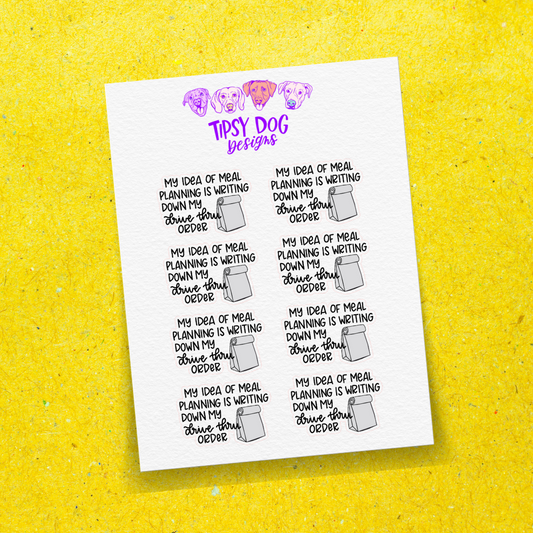 TIPSY DOG
Designs
MY IDEA OF MEAL
PLANNING IS WRITING
DOWN MY
drive thru
ORDER
MY IDEA OF MEAL
PLANNING IS WRITING
DOWN MY
drive thru
ORDER
MY IDEA OF MEAL
PLANNING IS WRITING
DOWN MY
drive thru
ORDER
MY IDEA OF MEAL
PLANNING IS WRITING
DOWN MY
drive thru
ORDER
MY IDEA OF MEAL
PLANNING IS WRITING
DOWN MY
drive thru
ORDER
MY IDEA OF MEAL
PLANNING IS WRITING
DOWN MY
drive thru
ORDER
MY IDEA OF MEAL
PLANNING IS WRITING
DOWN MY
drive thru
ORDER
MY IDEA OF MEAL
PLANNING IS WRITING
DOWN MY
drive thru
ORDER